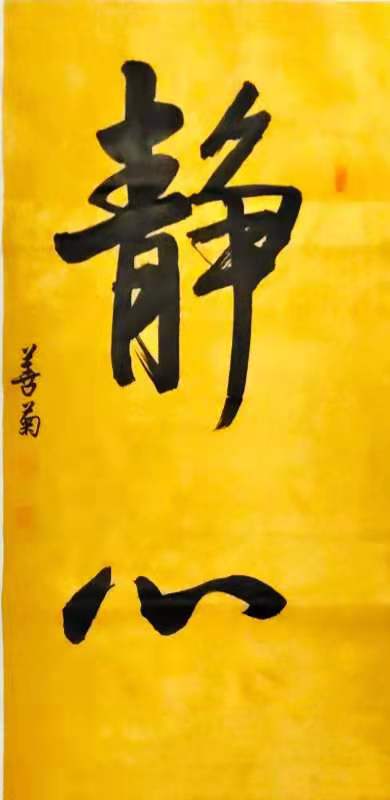 静心
善菊